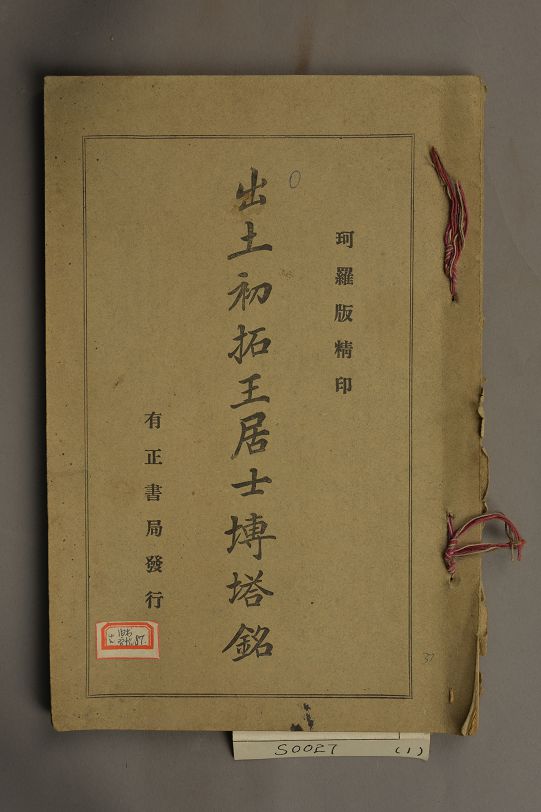 珂羅版精印
出土初拓王居士塼塔銘
有正書局發行
37
S0027 (1)